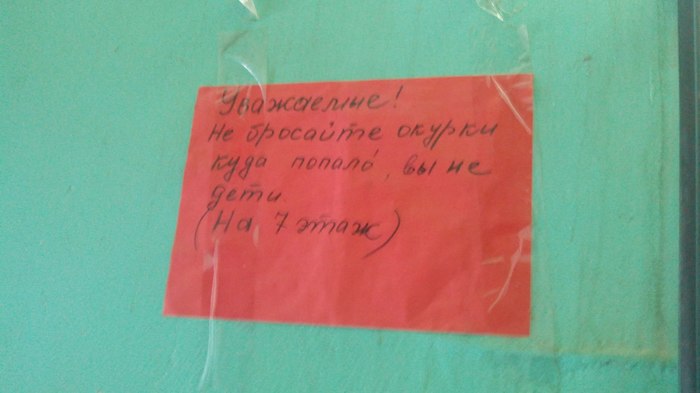 Уважаемые!
Не бросайте окурки
куда попало, вы не
дети.
(На 7 этаж)